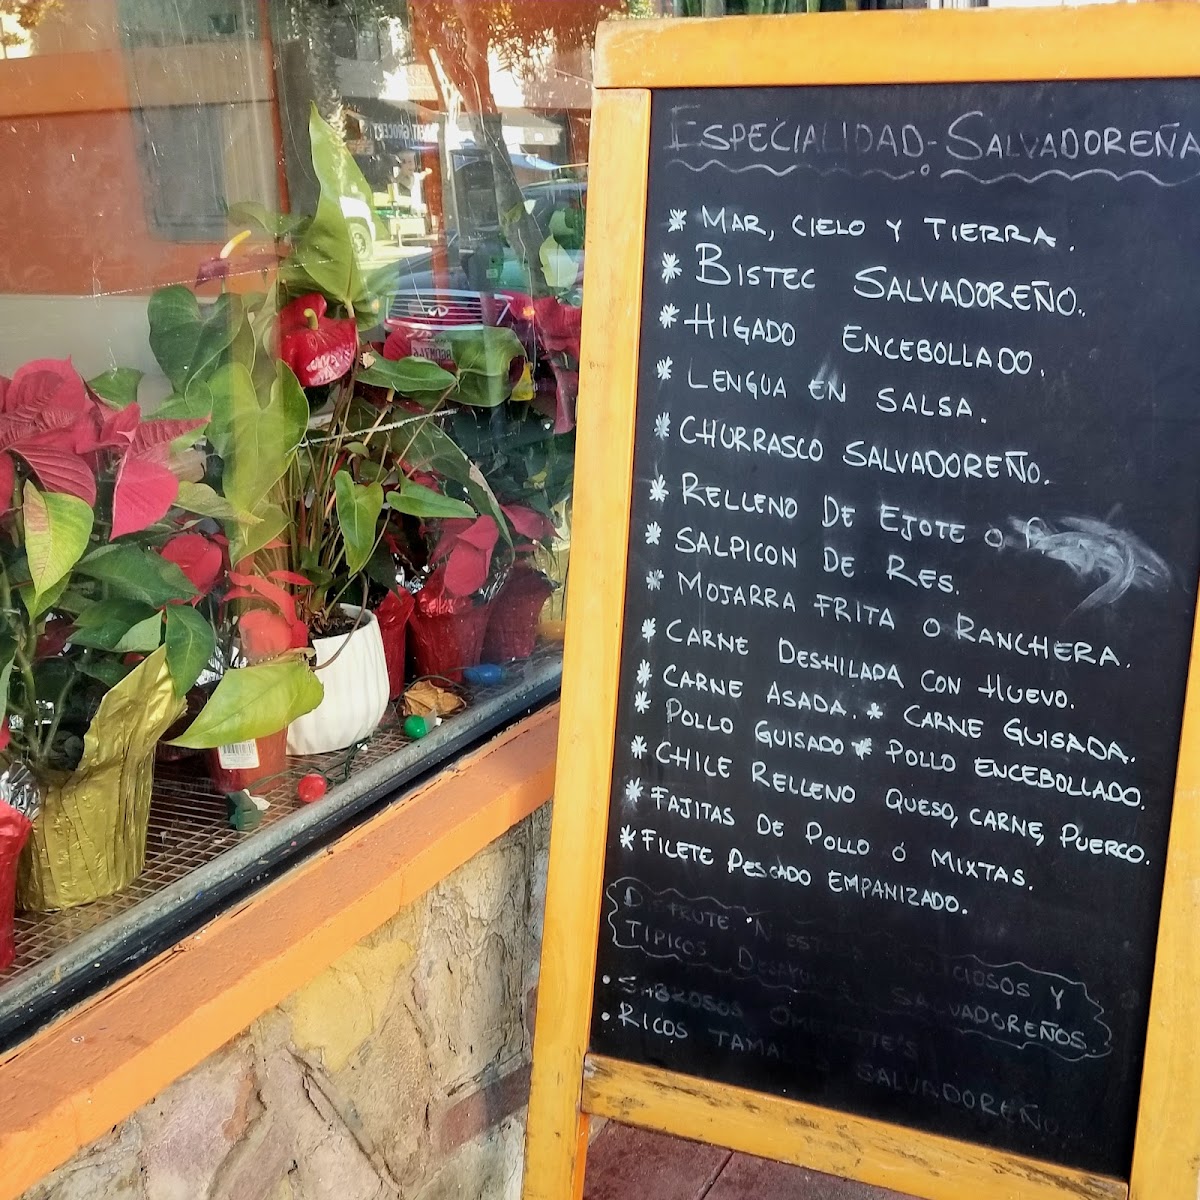 ESPECIALIDAD. SALVADOREÑA
* MAR, CIELO Y TIERRA.
* BISTEC SALVADOREÑO.
* HIGADO ENCEBOLLADO.
* LENGUA EN SALSA.
* CHURRASCO SALVADOREÑO.
* RELLENO DE EJOTE O
* SALPICON DE RES.
* MOJARRA FRITA O RANCHERA.
* CARNE DESHILADA CON HUEVO.
* CARNE ASADA. * CARNE GUISADA.
* POLLO GUISADO * POLLO ENCEBOLLADO.
* CHILE RELLENO QUESO, CARNE, PUERCO.
* FAJITAS DE POLLO Ó MIXTAS.
* FILETE PESCADO EMPANIZADO.
DISFRUTE NUESTROS DELICIOSOS Y
TIPICOS DESAYUNOS SALVADOREÑOS.
• SABROSOS OMELETTE'S
• RICOS TAMALES SALVADOREÑO